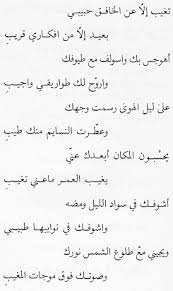 تغيب إلّا عن الخافـق حبيبـي
بعيـد إلّا مـن افكـاري قريـب
أهوجس بك واسولف مع طيوفـك
واروّح لـك طواريقـي واجيـب
علـى ليل الهوى رسمت وجهـك
وعطّـرت النسايم منـك طيـب
يحسـبون المكان أبعـدك عنّـي
يغيـب العمـر ماعنـي تغيـب
أشوفـك في سواد الليل ومضـه
واشوفـك في نوايبهـا طبيبـي
ويجيني مع طلـوع الشمس نورك
وصوتـك فوق موجات المغيـب